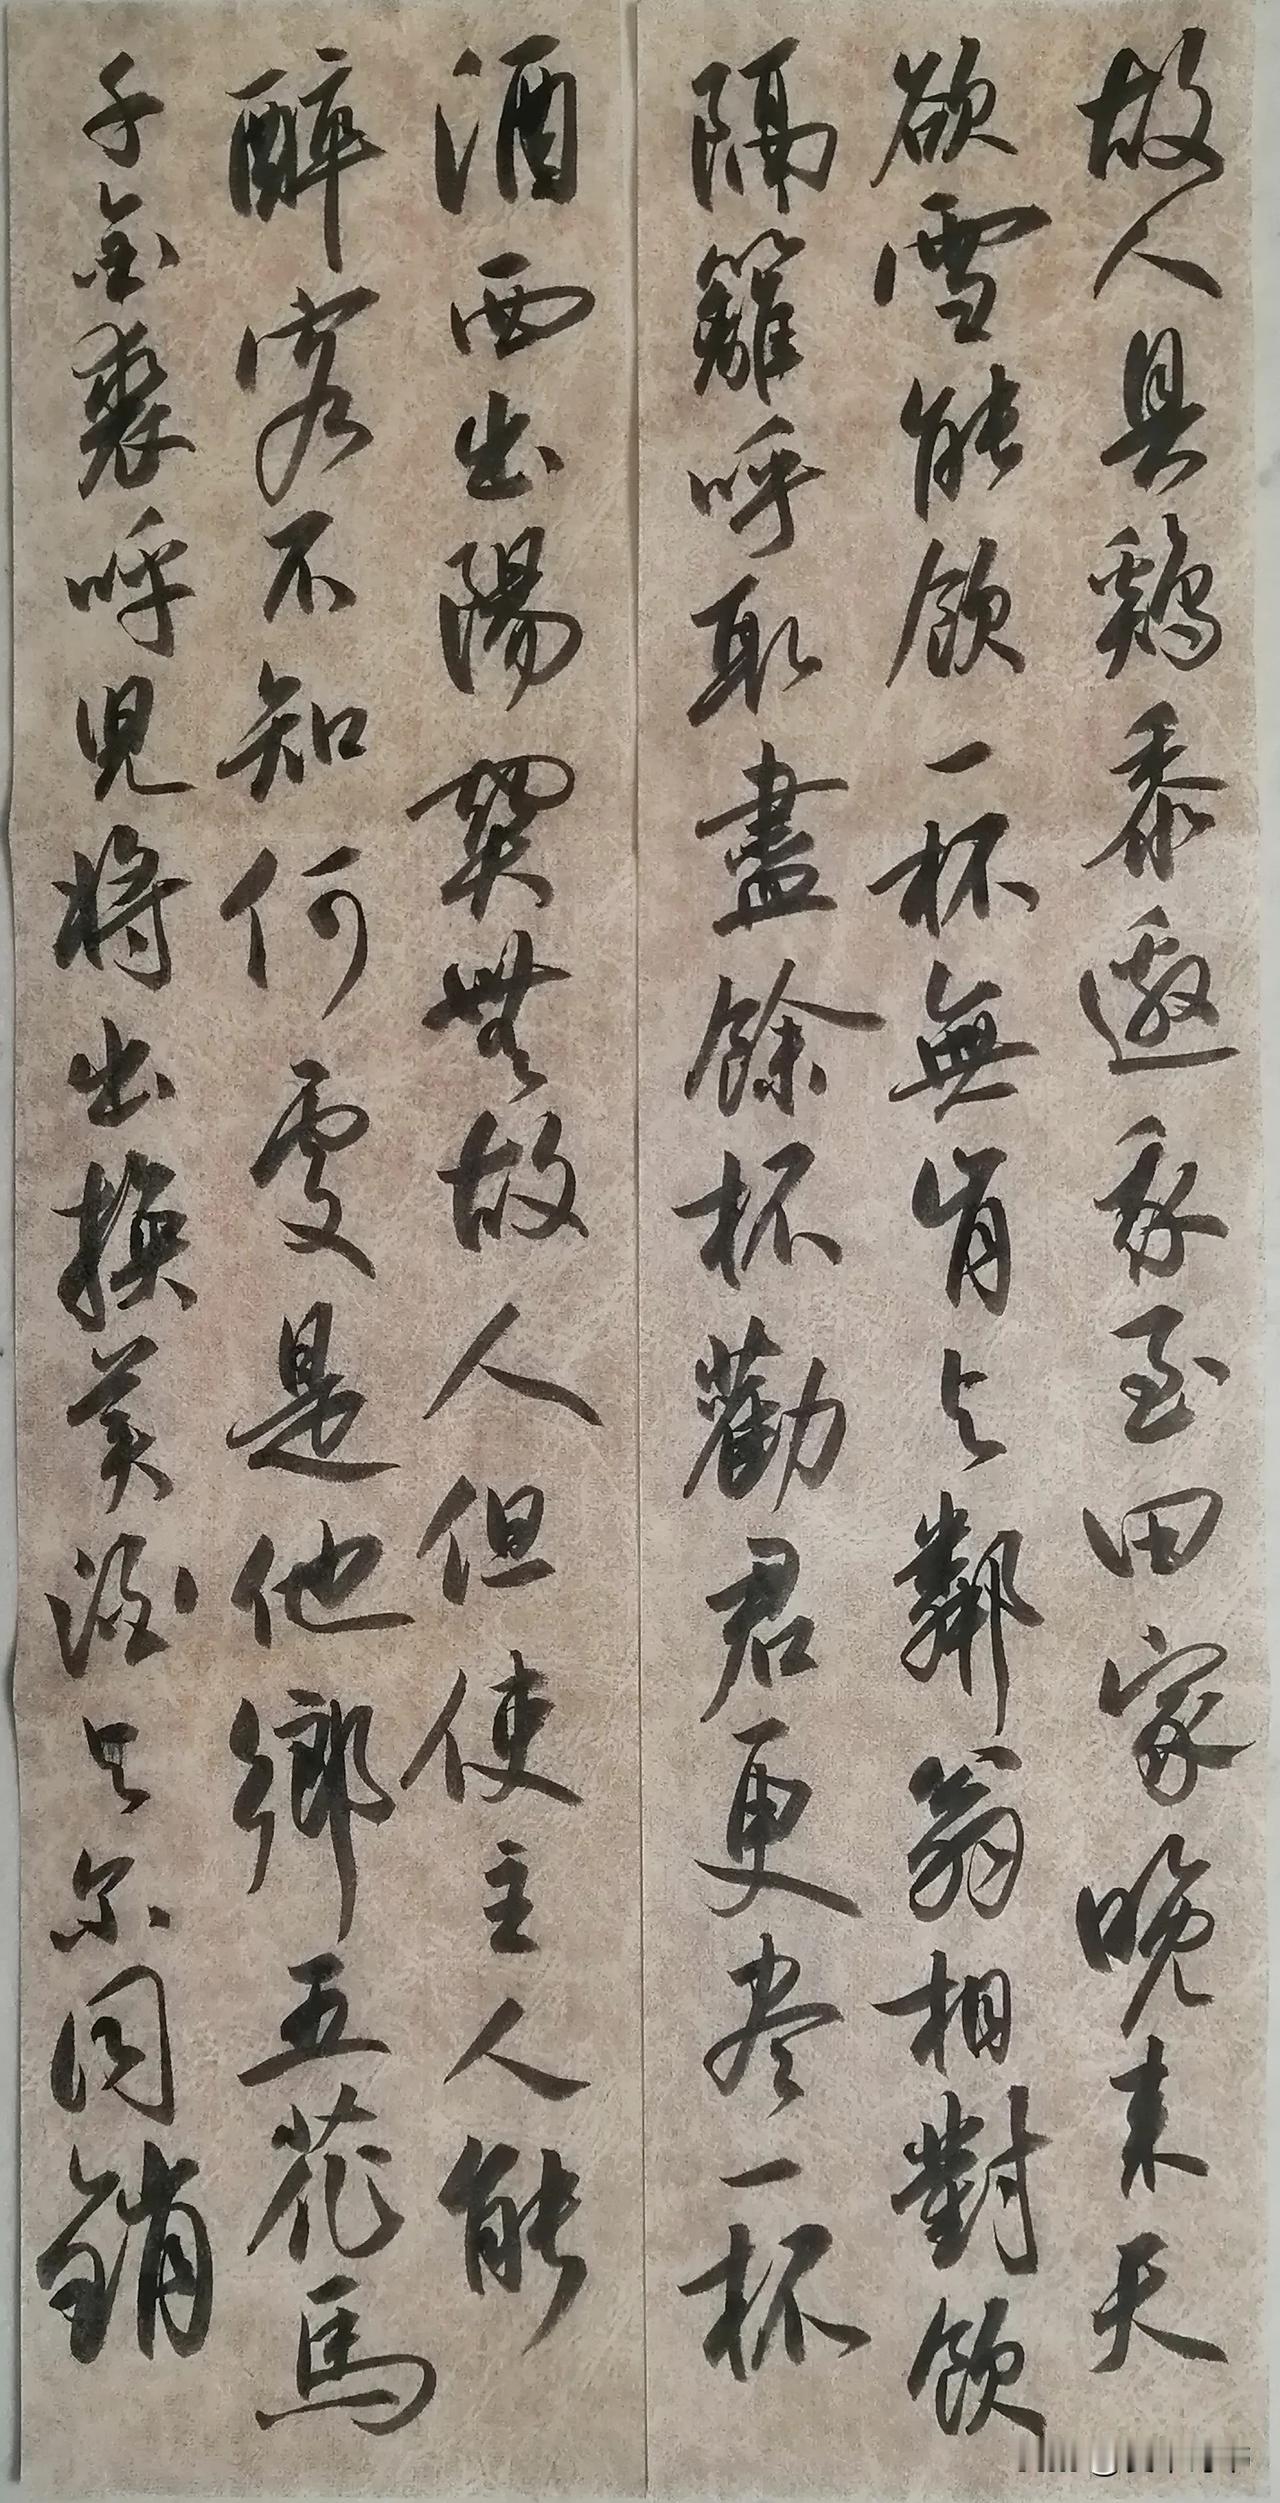 故人具鷄黍邀我至田家晚来天
欲雪能飲一杯無肯与鄰翁相對飲
隔籬呼取盡餘杯勸君更尽一杯
酒西出陽関無故人但使主人能
醉客不知何處是他鄉五花馬
千金裘呼児将出換美酒与尔同銷